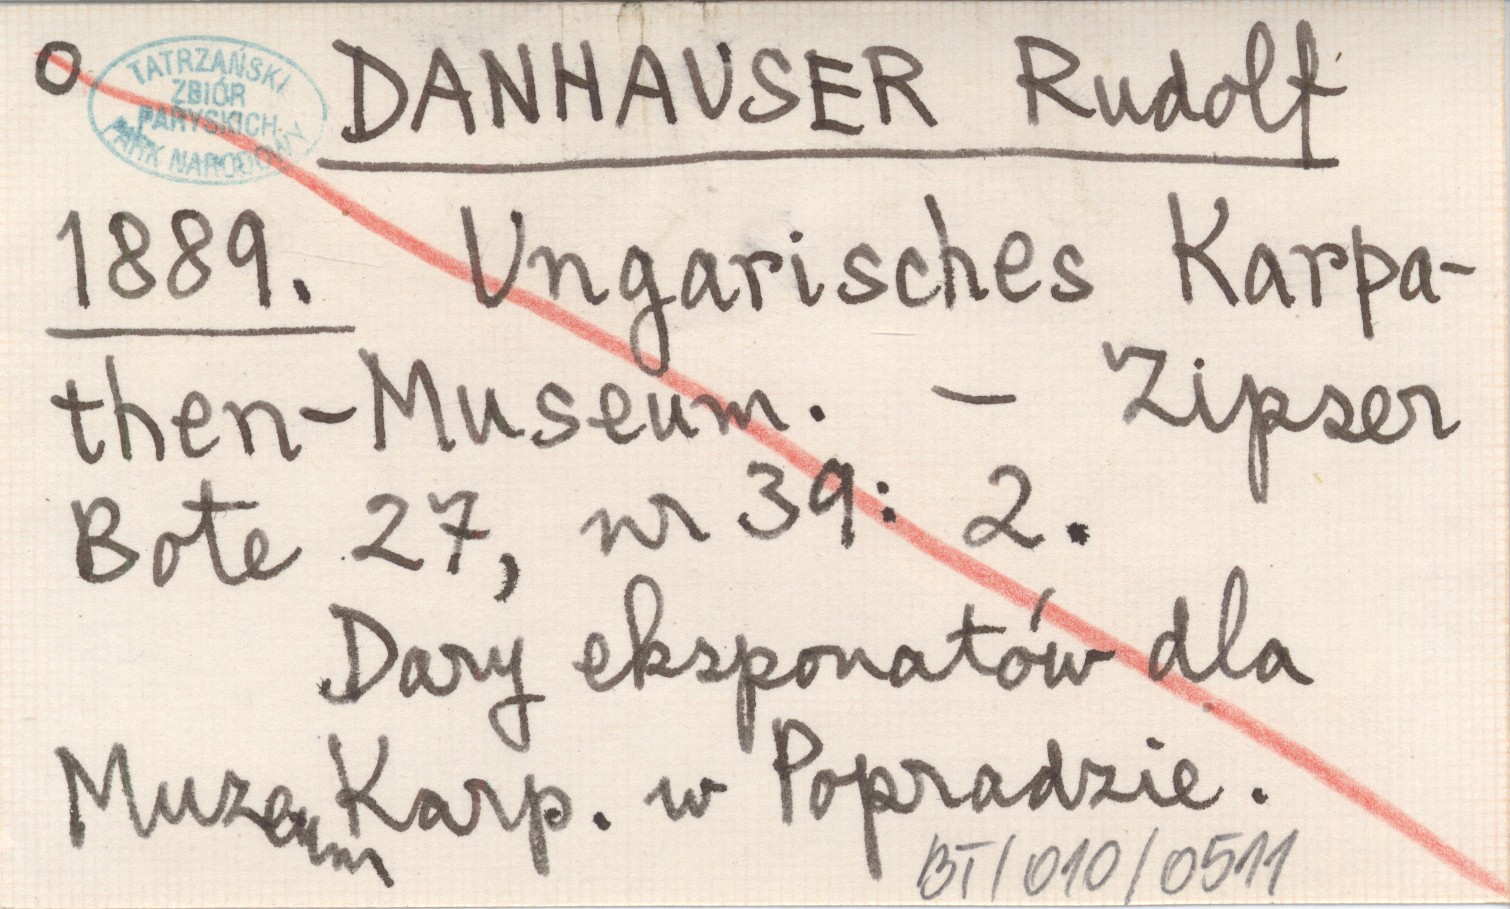 O DANHAUSER Rudolf
TATRZAŃSKI
ZBIÓR
PARYSKICH
PARK NARODOWY
1889. Ungarisches Karpa-
then-Museum. — Zipser
Bote 27, nr 39: 2.
Dary eksponatów dla
Muzeum Karp. w Popradzie.
BT/010/0511